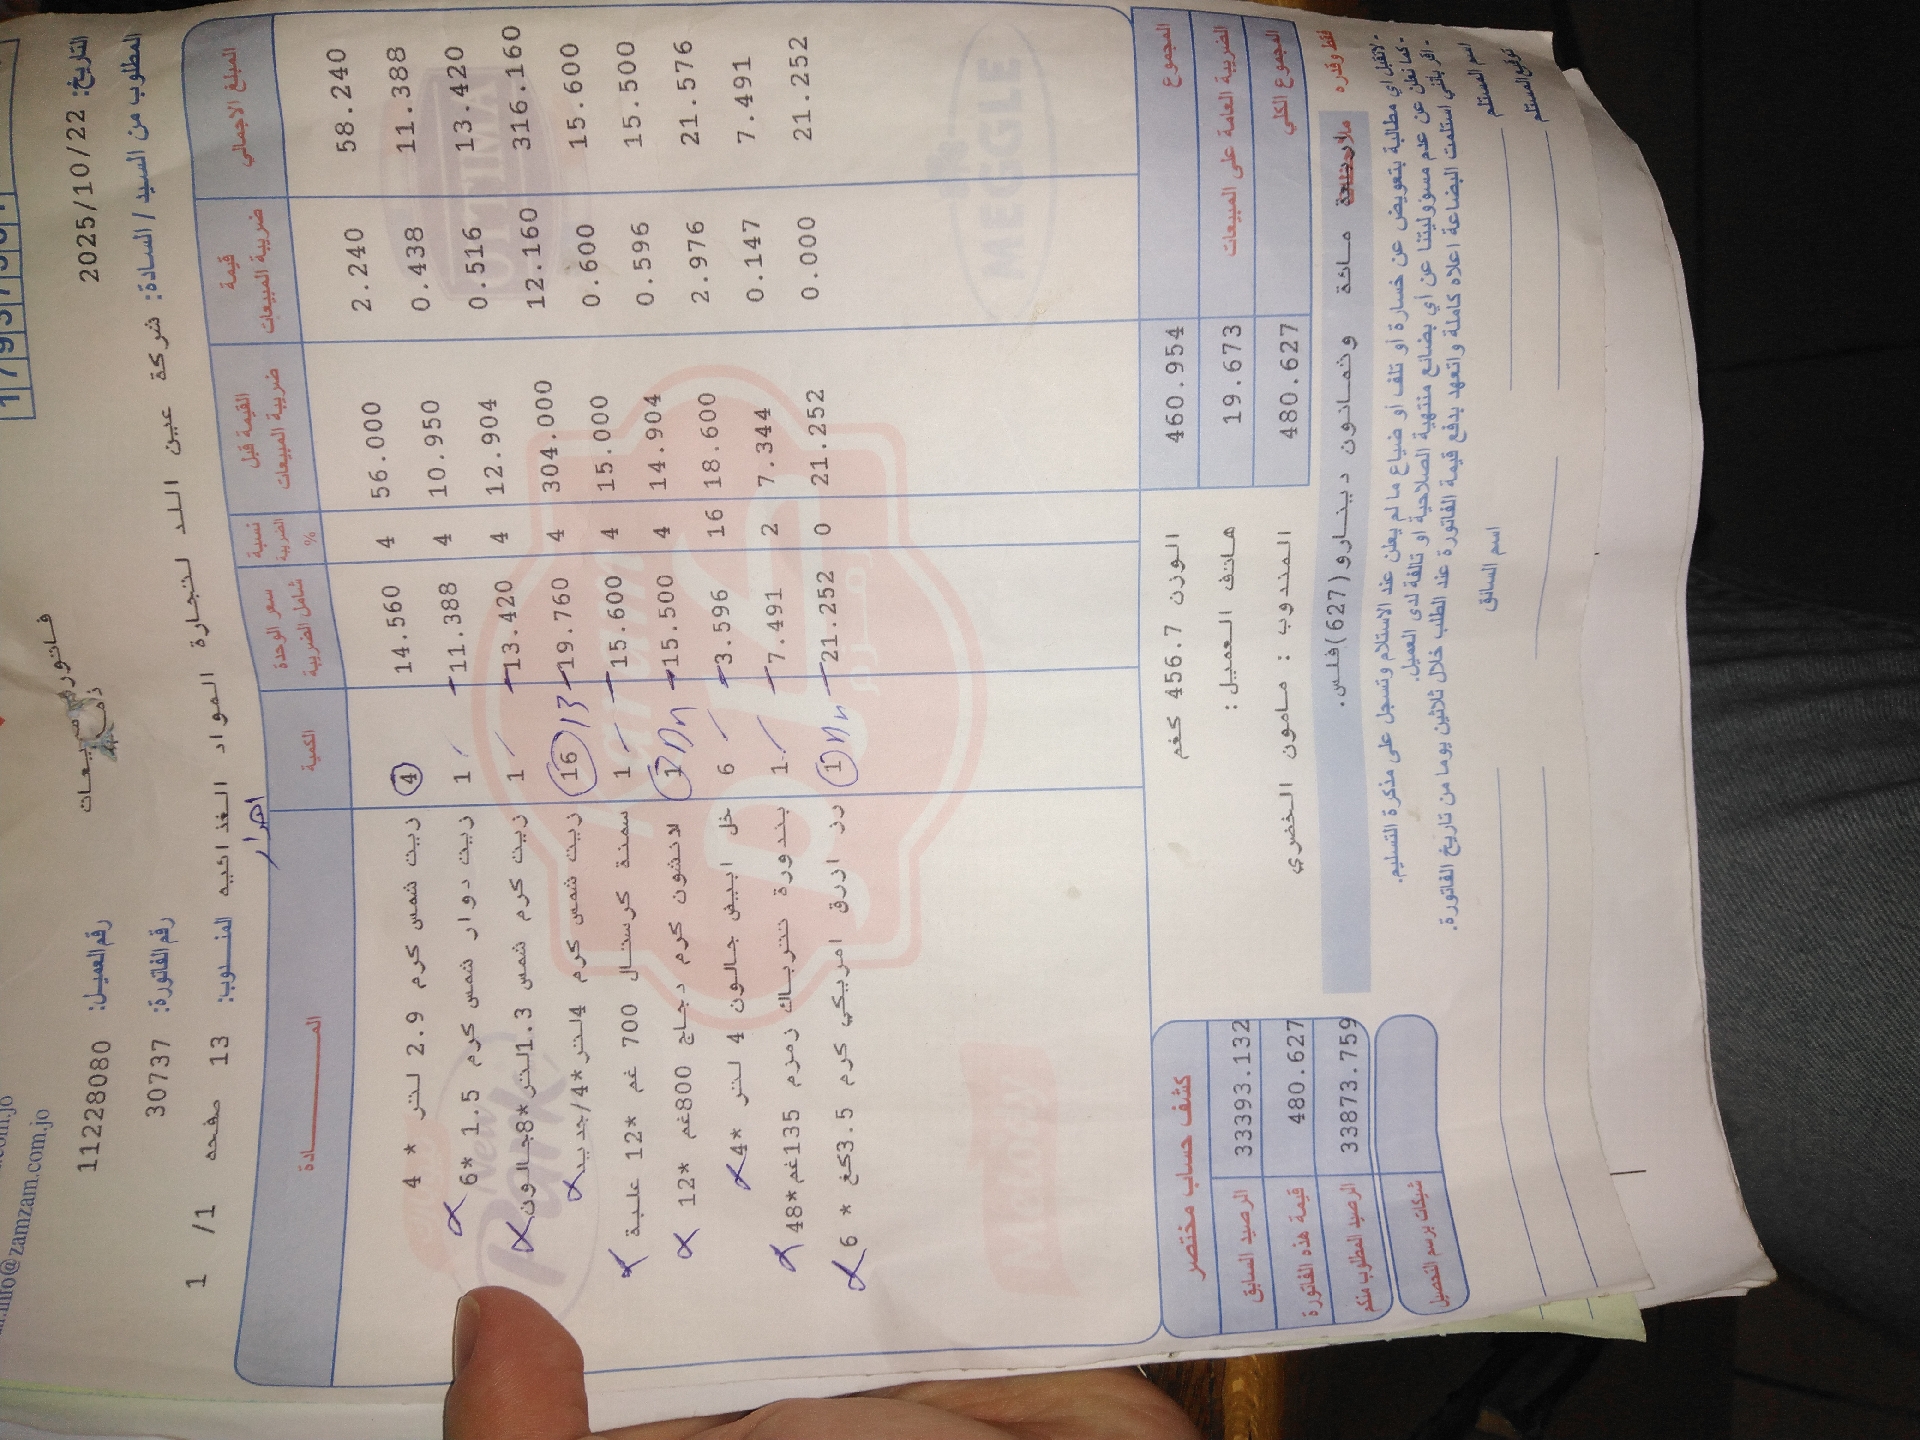 info@zamzam.com.jo
فاتورة مبيعات
ذمم
رقم العميل: 11228080
التاريخ: 2025/10/22
رقم الفاتورة: 30737
المطلوب من السيد / السادة: شركة عين اللد لتجارة المواد الغذائيه
المندوب: 13 صفحه 1/ 1
المادة الكمية سعر الوحدة شامل الضريبة نسبة الضريبة % القيمة قبل ضريبة المبيعات قيمة ضريبة المبيعات المبلغ الاجمالي
زيت شمس كرم 2.9 لتر * 4 4 14.560 4 56.000 2.240 58.240
زيت دوار شمس كرم 1.5 *6 1 11.388 4 10.950 0.438 11.388
زيت كرم شمس 1.3لتر*8جالون 1 13.420 4 12.904 0.516 13.420
زيت شمس كرم 4لتر*4/جديد 16 13 19.760 4 304.000 12.160 316.160
سمنة كرستال 700 غم *12 علبة 1 15.600 4 15.000 0.600 15.600
لانشون كرم دجاج 800غم *12 1 15.500 4 14.904 0.596 15.500
خل ابيض جالون 4 لتر *4 6 3.596 16 18.600 2.976 21.576
بندورة تتربا‎ك زمزم 135غم*48 1 7.491 2 7.344 0.147 7.491
رز ازرق امريكي كرم 3.5كغ * 6 1 21.252 0 21.252 0.000 21.252
المجموع 460.954
الضريبة العامة على المبيعات 19.673
المجموع الكلي 480.627
الوزن 456.7 كغم
هاتف العميل :
المندوب : مامون الخضري
كشف حساب مختصر
الرصيد السابق 33393.132
قيمة هذه الفاتورة 480.627
الرصيد المطلوب منكم 33873.759
شيكات برسم التحصيل
فقط وقدره مائة وثمانون دينارو(627)فلس.
- لاتقبل اي مطالبة بتعويض عن خسارة او تلف او ضياع ما لم يعلن عند الاستلام وتسجل على مذكرة التسليم.
- كما نعلن عن عدم مسؤوليتنا عن أي بضائع منتهية الصلاحية او تالفة لدى العميل.
- اقر بأنني استلمت البضاعة اعلاه كاملة واتعهد بدفع قيمة الفاتورة عند الطلب خلال ثلاثين يوما من تاريخ الفاتورة.
اسم المستلم
اسم السائق
توقيع المستلم